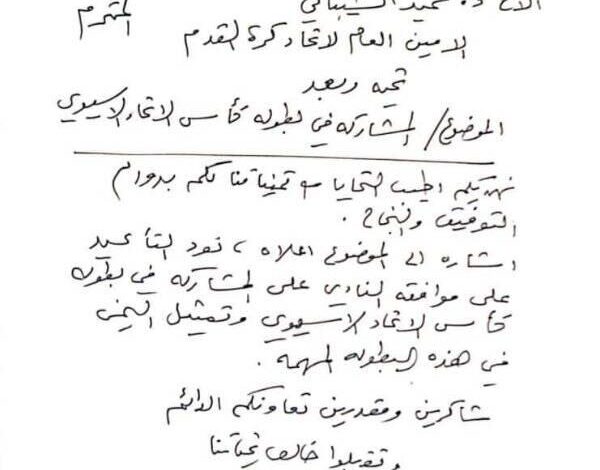 الاخ / د. حميد الشيباني
المحترم
الامين العام لاتحاد كرة القدم
تحيه وبعد
الموضوع / المشاركه في بطوله كأس الاتحاد الاسيوي
نهديكم اطيب التحايا مع تمنياتنا لكم بدوام
التوفيق والنجاح .
اشاره الى الموضوع اعلاه ، نود التأكيد
على موافقه النادي على المشاركه في بطوله
كأس الاتحاد الاسيوي وتمثيل اليمن
في هذه البطوله المهمه .
شاكرين ومقدرين تعاونكم الدائم
وتقبلوا خالص تحياتنا